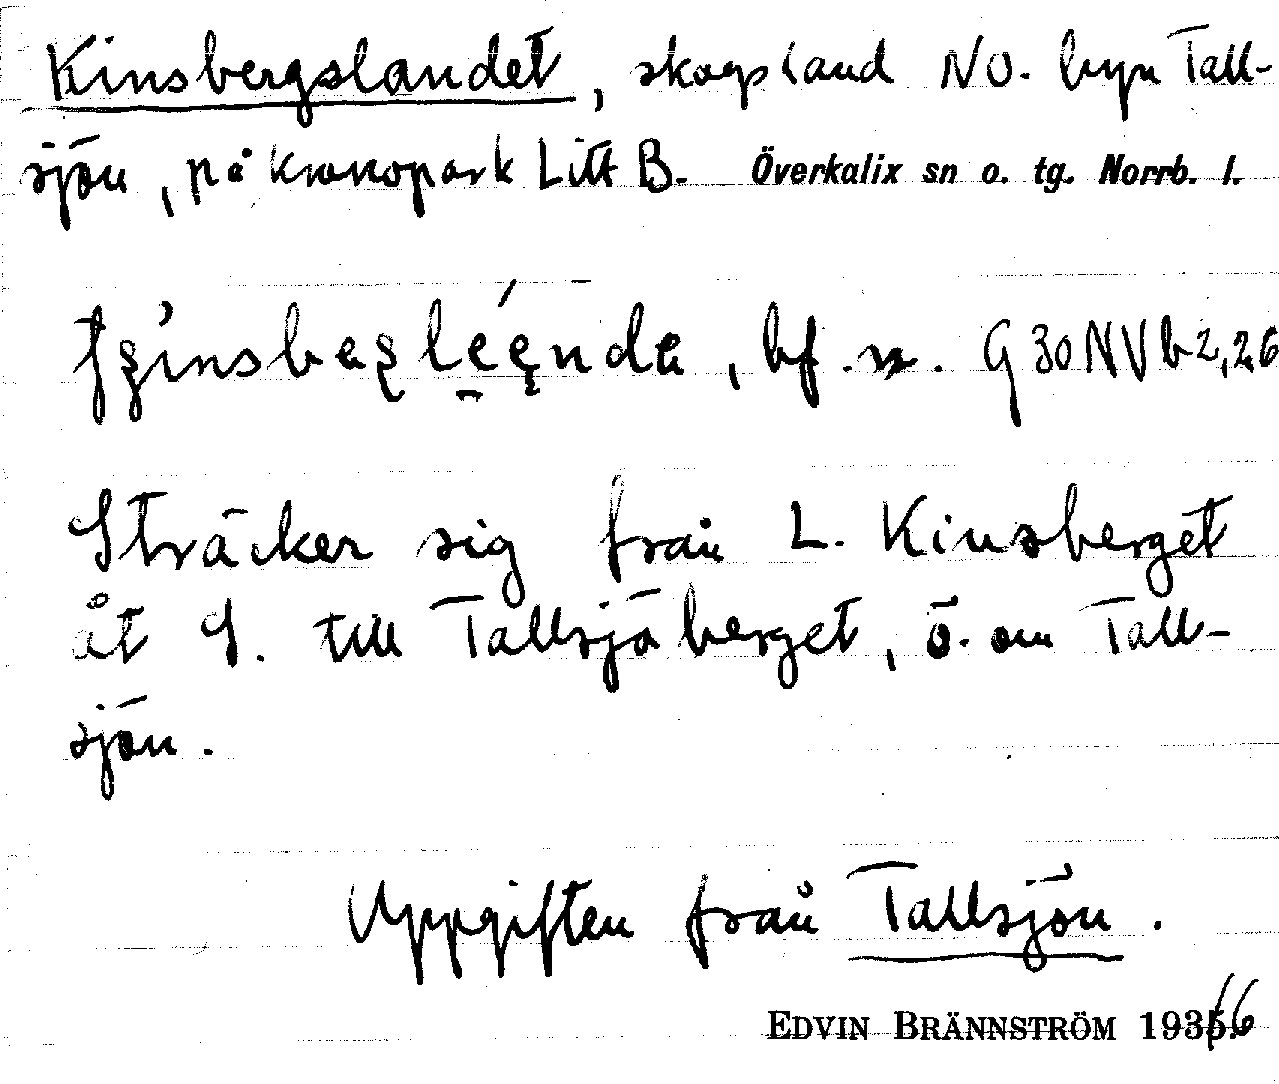 Kinsbergslandet, skogsland NO. byn Tall-
sjön, på kronopark Litt B. Överkalix sn o. tg. Norrb. l.
bf. n. G 30 NV b 2, 26
Sträcker sig från L. Kinsberget
åt S. till Tallsjöberget, ö. om Tall-
sjön.
Uppgiften från Tallsjön.
EDVIN BRÄNNSTRÖM 1936